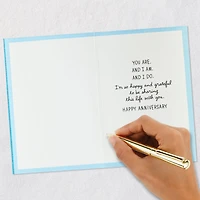 YOU ARE.
AND I AM.
AND I DO.
I'm so happy and grateful
to be sharing
this life with you.
HAPPY ANNIVERSARY